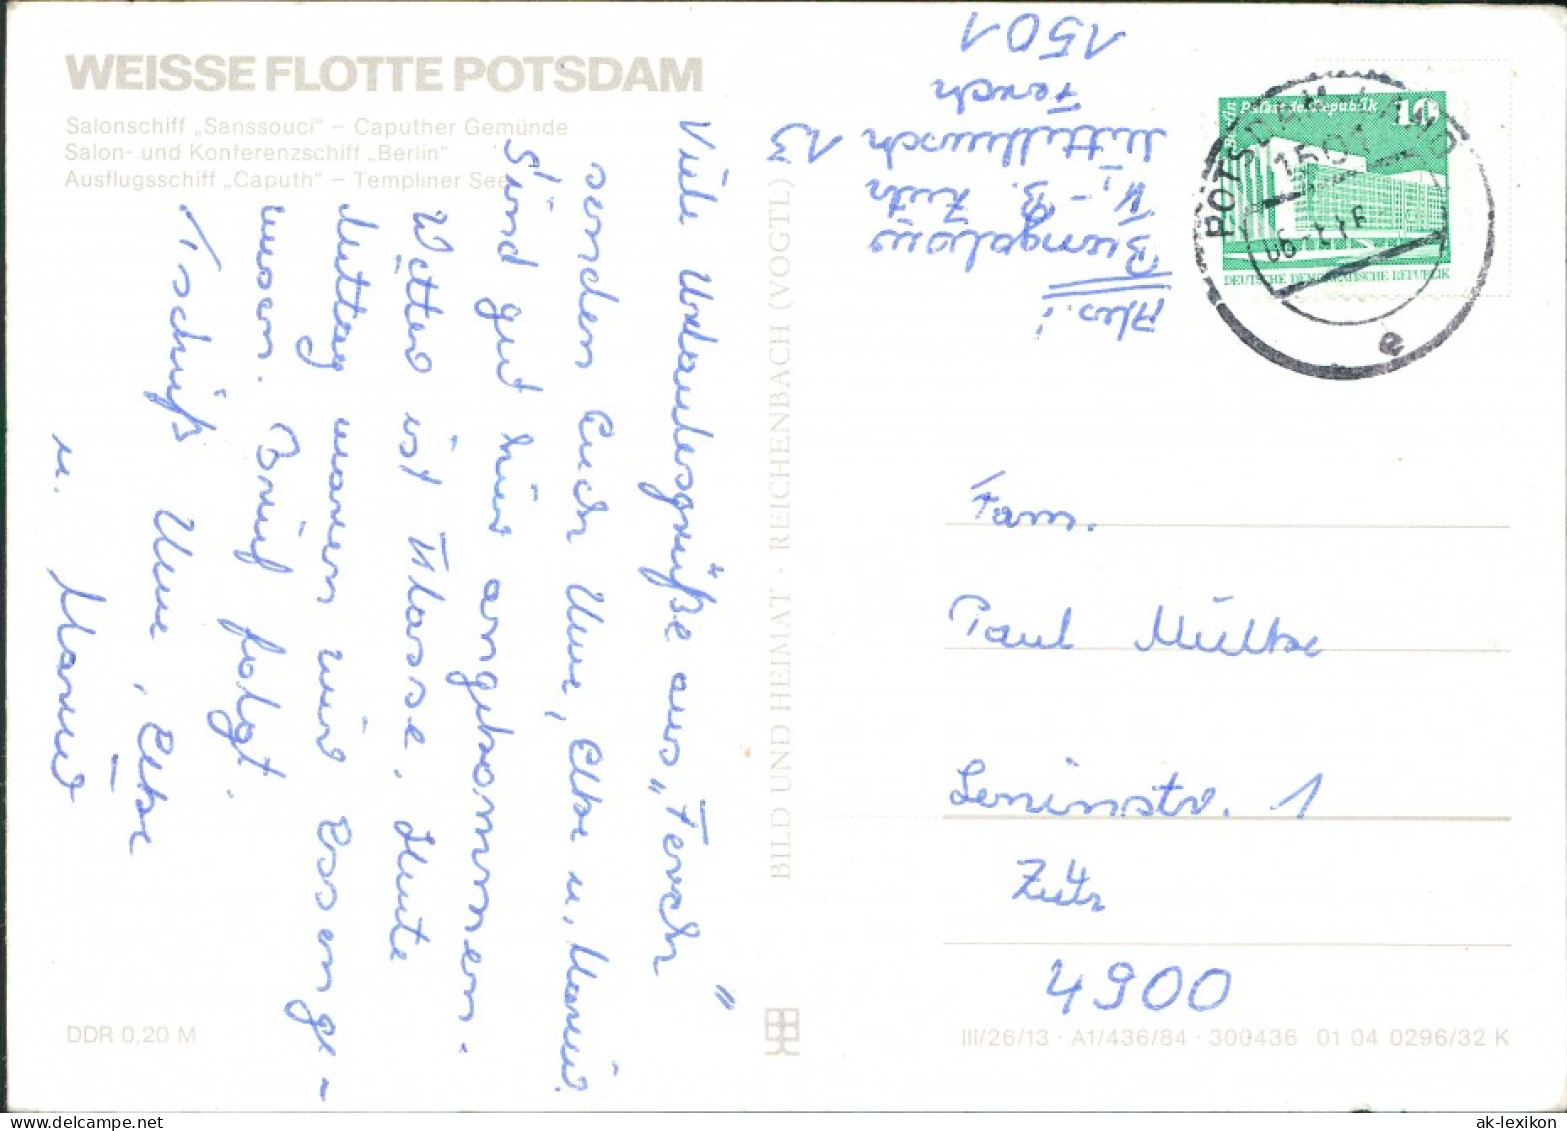 WEISSE FLOTTE POTSDAM
Salonschiff „Sanssouci“ – Caputher Gemünde
Salon- und Konferenzschiff „Berlin“
Ausflugsschiff „Caputh“ – Templiner See
Viele Urlaubsgrüße aus „Ferch“
senden Euch Uwe, Elke u. Manu
Sind gut hier angekommen.
Wetter ist Klasse. Heute
Mittag waren wir Essen ge-
wesen. Brief folgt.
Tschüß Uwe, Elke
u. Manu
DDR 0,20 M
BILD UND HEIMAT · REICHENBACH (VOGTL)
Abs.:
Bungalow
13
Ferch
1501
Palast der Republik 10
DEUTSCHE DEMOKRATISCHE REPUBLIK
POTSDAM-LAND
1501
e
Fam.
Paul
Leninstr. 1
Zeitz
4900
III/26/13 · A1/436/84 · 300436 01 04 0296/32 K
ak-lexikon